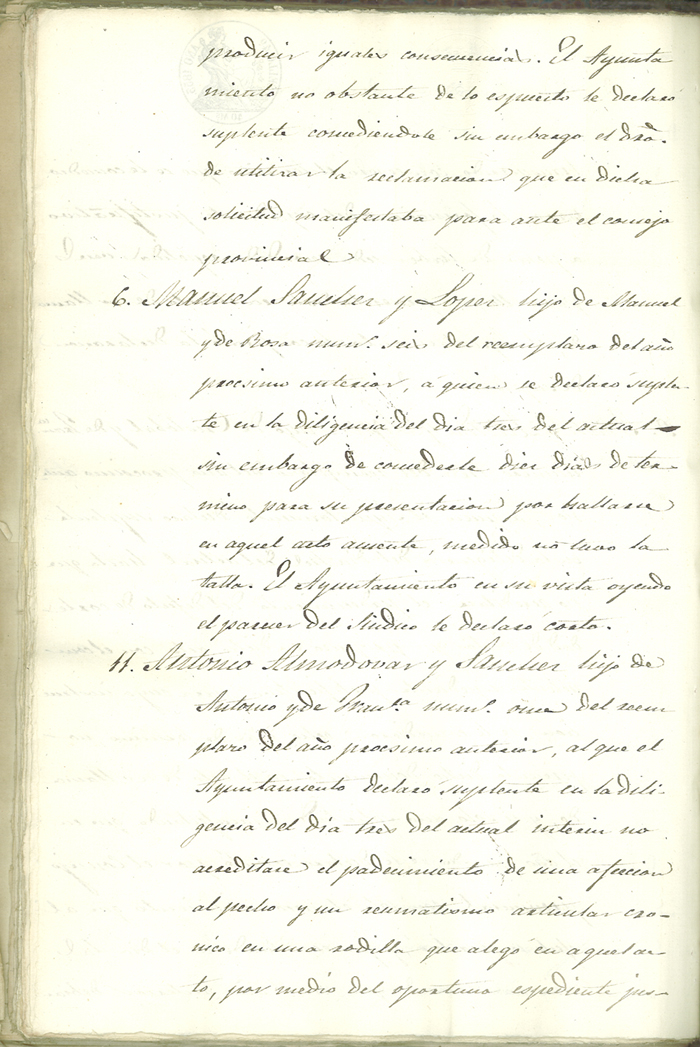 producir iguales consecuencias. El Ayunta
miento no obstante de lo espuesto le declaró
suplente concediendole sin embargo el dro.
de utilizar la reclamacion que en dicha
solicitud manifestaba para ante el consejo
provincial
6. Manuel Sanchez y Lopez hijo de Manuel
y de Rosa num.º seis del reemplazo del año
procsimo anterior, á quien se declaró suplen-
te en la diligencia del dia tres del actual
sin embargo de concederle diez dias de ter-
mino para su presentacion por hallarse
en aquel acto ausente, medido no tuvo la
talla. El Ayuntamiento en su vista oyendo
el parecer del Sindico le declaró corto.
11. Antonio Almodovar y Sanchez hijo de
Antonio y de Fran.ca num.º once del reem
plazo del año procsimo anterior, al que el
Ayuntamiento declaró suplente en la dili-
gencia del dia tres del actual interin no
acreditase el padecimiento de una afeccion
al pecho y un reumatismo articular cro-
nico en una rodilla que alegó en aquel ac-
to, por medio del oportuno espediente jus-